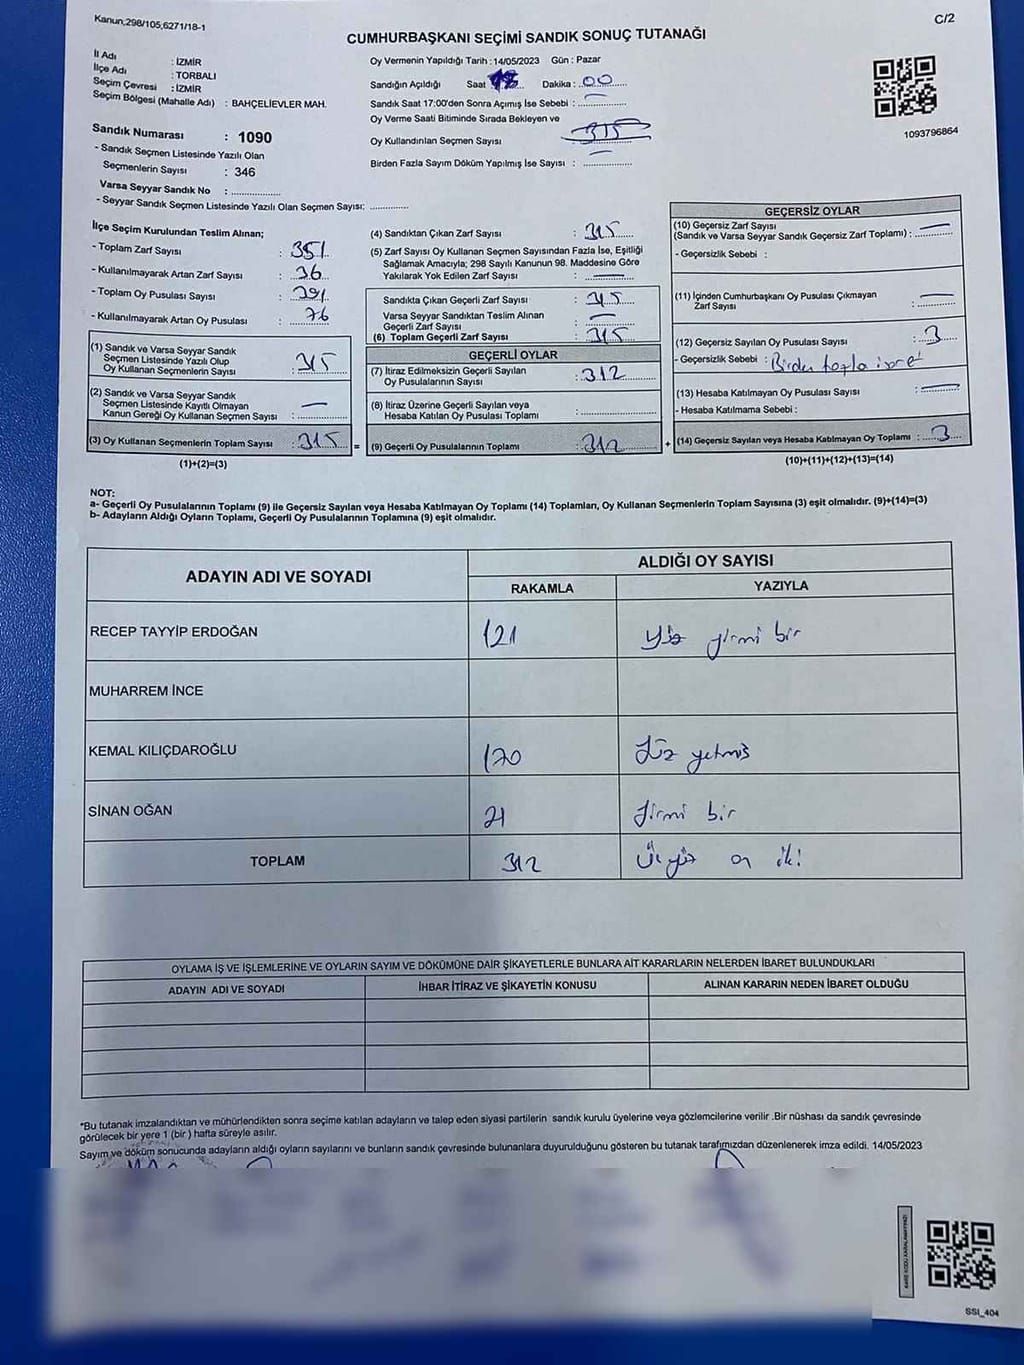 Kanun;298/105,6271/18-1
C/2
CUMHURBAŞKANI SEÇİMİ SANDIK SONUÇ TUTANAĞI
İl Adı : İZMİR
İlçe Adı : TORBALI
Seçim Çevresi : İZMİR
Seçim Bölgesi (Mahalle Adı) : BAHÇELİEVLER MAH.
Sandık Numarası : 1090
- Sandık Seçmen Listesinde Yazılı Olan
Seçmenlerin Sayısı : 346
Varsa Seyyar Sandık No :
- Seyyar Sandık Seçmen Listesinde Yazılı Olan Seçmen Sayısı:
Oy Vermenin Yapıldığı Tarih : 14/05/2023 Gün : Pazar
Sandığın Açıldığı Saat Dakika : 00
Sandık Saat 17:00'den Sonra Açımış İse Sebebi : —
Oy Verme Saati Bitiminde Sırada Bekleyen ve
Oy Kullandırılan Seçmen Sayısı : 315
Birden Fazla Sayım Döküm Yapılmış İse Sayısı : —
1093796864
İlçe Seçim Kurulundan Teslim Alınan;
- Toplam Zarf Sayısı : 351
- Kullanılmayarak Artan Zarf Sayısı : 36
- Toplam Oy Pusulası Sayısı : 391
- Kullanılmayarak Artan Oy Pusulası : 76
(1) Sandık ve Varsa Seyyar Sandık
Seçmen Listesinde Yazılı Olup
Oy Kullanan Seçmenlerin Sayısı : 315
(2) Sandık ve Varsa Seyyar Sandık
Seçmen Listesinde Kayıtlı Olmayan
Kanun Gereği Oy Kullanan Seçmen Sayısı : —
(3) Oy Kullanan Seçmenlerin Toplam Sayısı : 315 =
(1)+(2)=(3)
(4) Sandıktan Çıkan Zarf Sayısı : 315
(5) Zarf Sayısı Oy Kullanan Seçmen Sayısından Fazla İse, Eşitliği
Sağlamak Amacıyla; 298 Sayılı Kanunun 98. Maddesine Göre
Yakılarak Yok Edilen Zarf Sayısı : —
Sandıkta Çıkan Geçerli Zarf Sayısı : 315
Varsa Seyyar Sandıktan Teslim Alınan
Geçerli Zarf Sayısı : —
(6) Toplam Geçerli Zarf Sayısı : 315
GEÇERLİ OYLAR
(7) İtiraz Edilmeksizin Geçerli Sayılan
Oy Pusulalarının Sayısı : 312
(8) İtiraz Üzerine Geçerli Sayılan veya
Hesaba Katılan Oy Pusulası Toplamı :
(9) Geçerli Oy Pusulalarının Toplamı : 312 +
GEÇERSİZ OYLAR
(10) Geçersiz Zarf Sayısı
(Sandık ve Varsa Seyyar Sandık Geçersiz Zarf Toplamı) : —
- Geçersizlik Sebebi :
(11) İçinden Cumhurbaşkanı Oy Pusulası Çıkmayan
Zarf Sayısı : —
(12) Geçersiz Sayılan Oy Pusulası Sayısı : 3
- Geçersizlik Sebebi : Birden fazla işaret
(13) Hesaba Katılmayan Oy Pusulası Sayısı : —
- Hesaba Katılmama Sebebi :
(14) Geçersiz Sayılan veya Hesaba Katılmayan Oy Toplamı : 3
(10)+(11)+(12)+(13)=(14)
NOT:
a- Geçerli Oy Pusulalarının Toplamı (9) ile Geçersiz Sayılan veya Hesaba Katılmayan Oy Toplamı (14) Toplamları, Oy Kullanan Seçmenlerin Toplam Sayısına (3) eşit olmalıdır. (9)+(14)=(3)
b- Adayların Aldığı Oyların Toplamı, Geçerli Oy Pusulalarının Toplamına (9) eşit olmalıdır.
ADAYIN ADI VE SOYADI
ALDIĞI OY SAYISI
RAKAMLA YAZIYLA
RECEP TAYYİP ERDOĞAN 121 Yüz yirmi bir
MUHARREM İNCE
KEMAL KILIÇDAROĞLU 170 Yüz yetmiş
SİNAN OĞAN 21 Yirmi bir
TOPLAM 312 Üçyüz on iki
OYLAMA İŞ VE İŞLEMLERİNE VE OYLARIN SAYIM VE DÖKÜMÜNE DAİR ŞİKAYETLERLE BUNLARA AİT KARARLARIN NELERDEN İBARET BULUNDUKLARI
ADAYIN ADI VE SOYADI İHBAR İTİRAZ VE ŞİKAYETİN KONUSU ALINAN KARARIN NEDEN İBARET OLDUĞU
*Bu tutanak imzalandıktan ve mühürlendikten sonra seçime katılan adayların ve talep eden siyasi partilerin sandık kurulu üyelerine veya gözlemcilerine verilir .Bir nüshası da sandık çevresinde
görülecek bir yere 1 (bir ) hafta süreyle asılır.
Sayım ve döküm sonucunda adayların aldığı oyların sayılarını ve bunların sandık çevresinde bulunanlara duyurulduğunu gösteren bu tutanak tarafımızdan düzenlenerek imza edildi. 14/05/2023
SSI_404